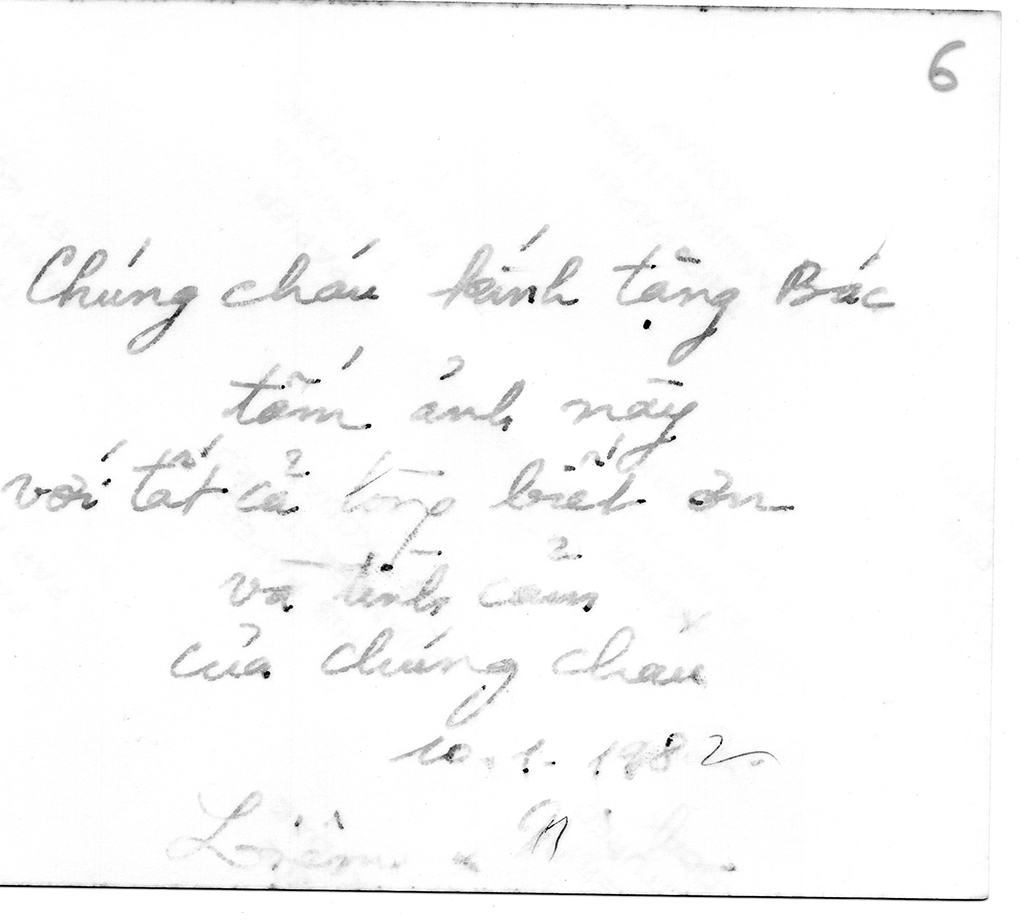 6
Chúng cháu kính tặng Bác
tấm ảnh này
với tất cả lòng biết ơn
và tình cảm
của chúng cháu
10.1.1982
Liêm